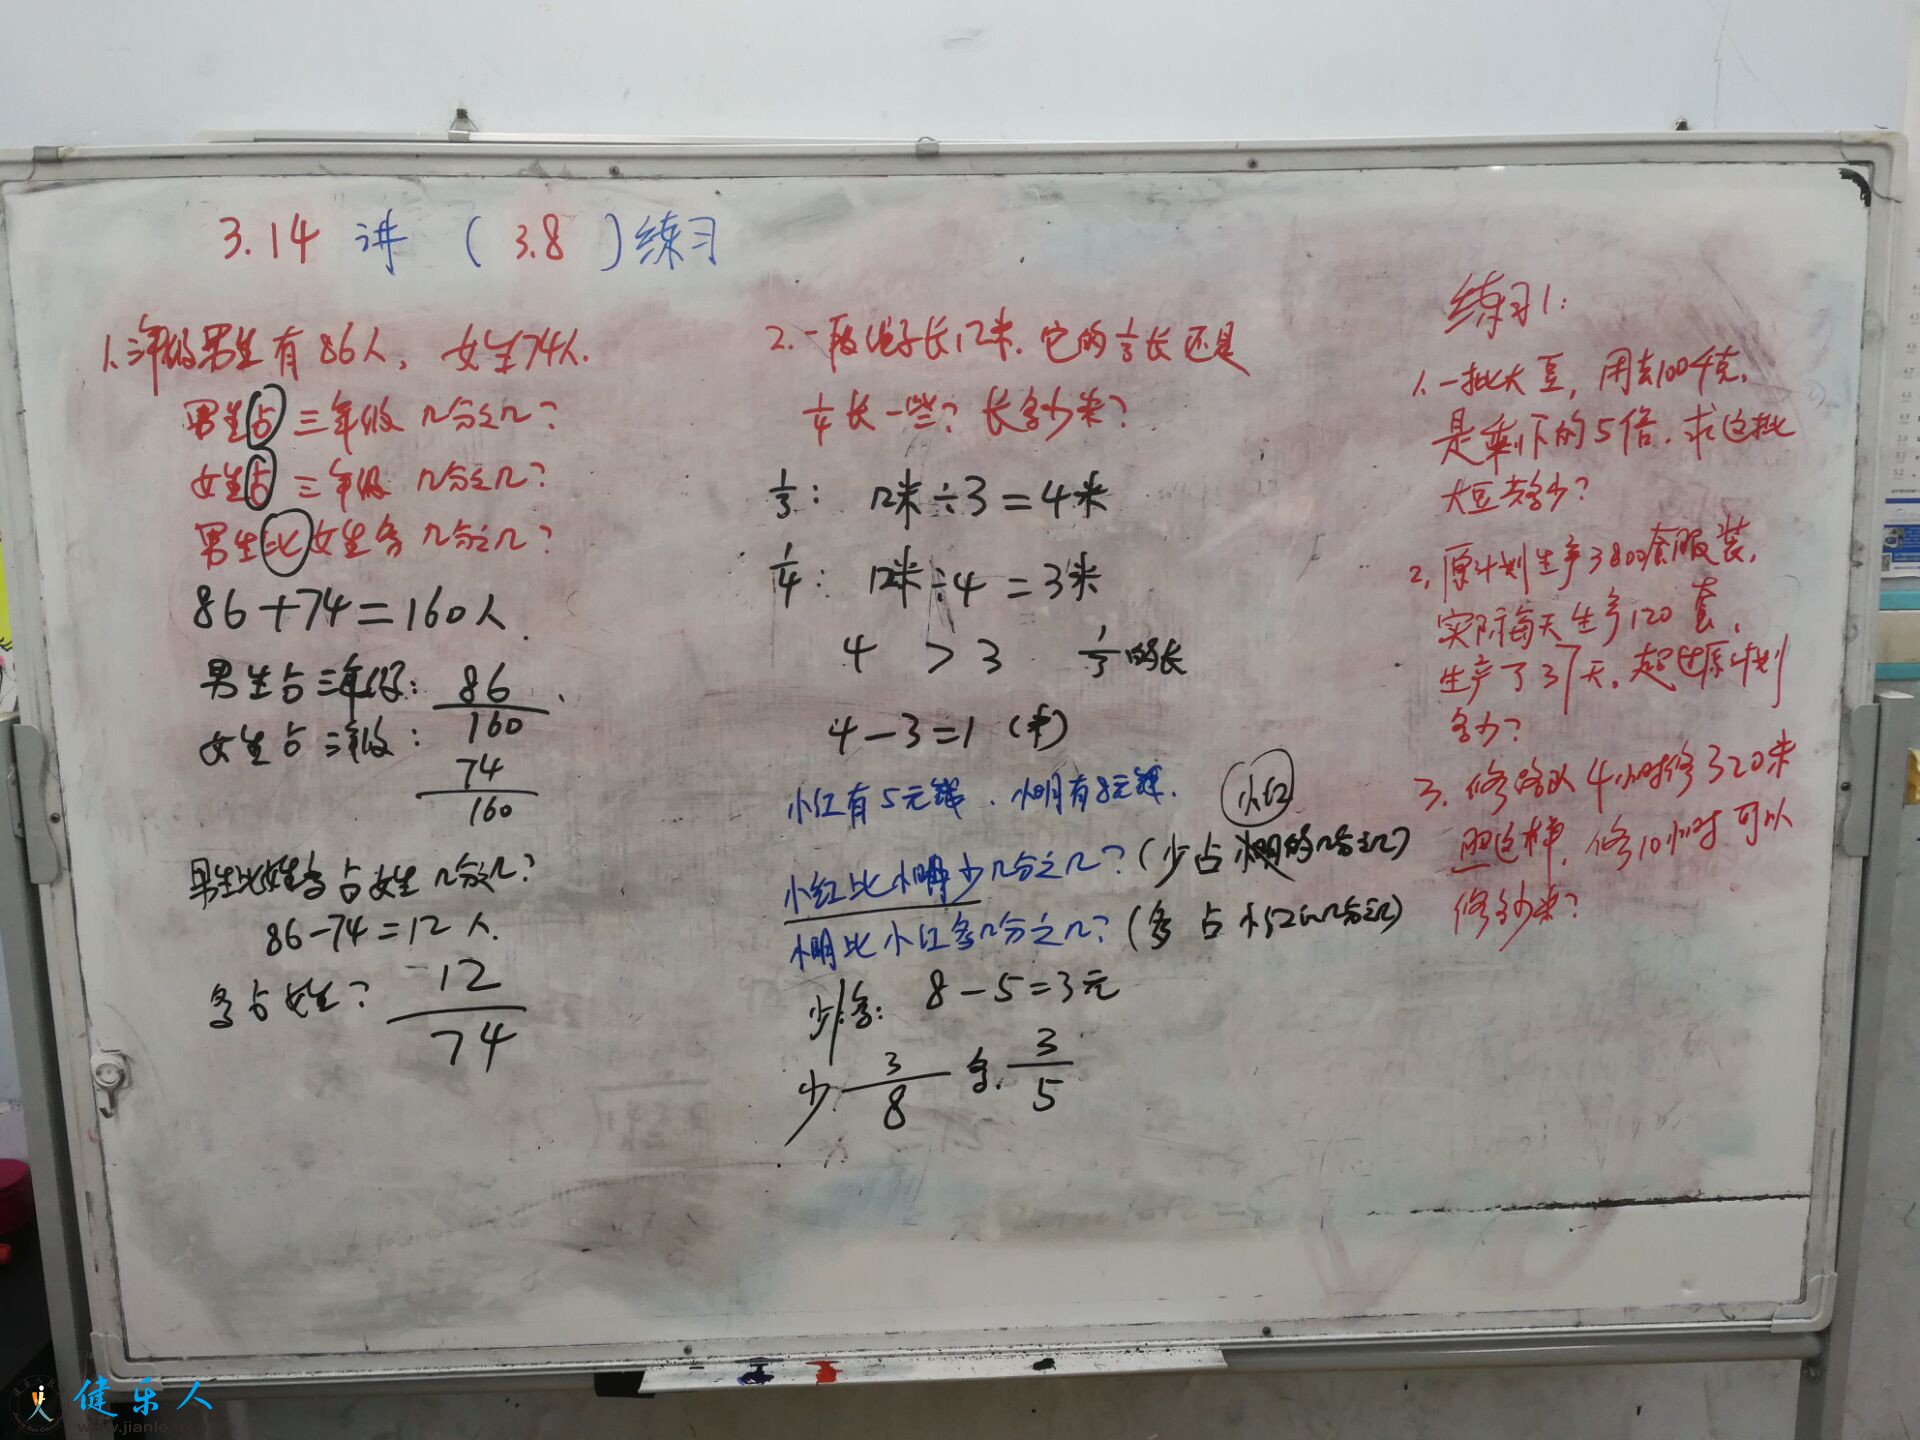 3.14 讲 (3.8)练习
1.三年级男生有86人, 女生74人.
男生占三年级几分之几?
女生占三年级几分之几?
男生比女生多几分之几?
86+74=160人.
男生占三年级: 86/160
女生占三年级: 74/160
男生比女生多占女生几分之几?
86-74=12人.
多占女生? 12/74
2.一段绳子长12米.它的1/3长还是
1/4长一些?长多少米?
1/3: 12米÷3=4米
1/4: 12米÷4=3米
4 > 3 1/3的长
4-3=1(米)
小红有5元钱.小明有8元钱. 小红
小红比小明少几分之几?(少占小明的几分之几)
小明比小红多几分之几?(多占小红的几分之几)
少/多: 8-5=3元
少. 3/8 多. 3/5
练习1:
1.一批大豆,用去100千克,
是剩下的5倍.求这批
大豆共多少?
2.原计划生产3800套服装,
实际每天生产120套,
生产了37天.超过原计划
多少?
3.修路队4小时修320米
照这样,修10小时可以
修多少米?
健乐人